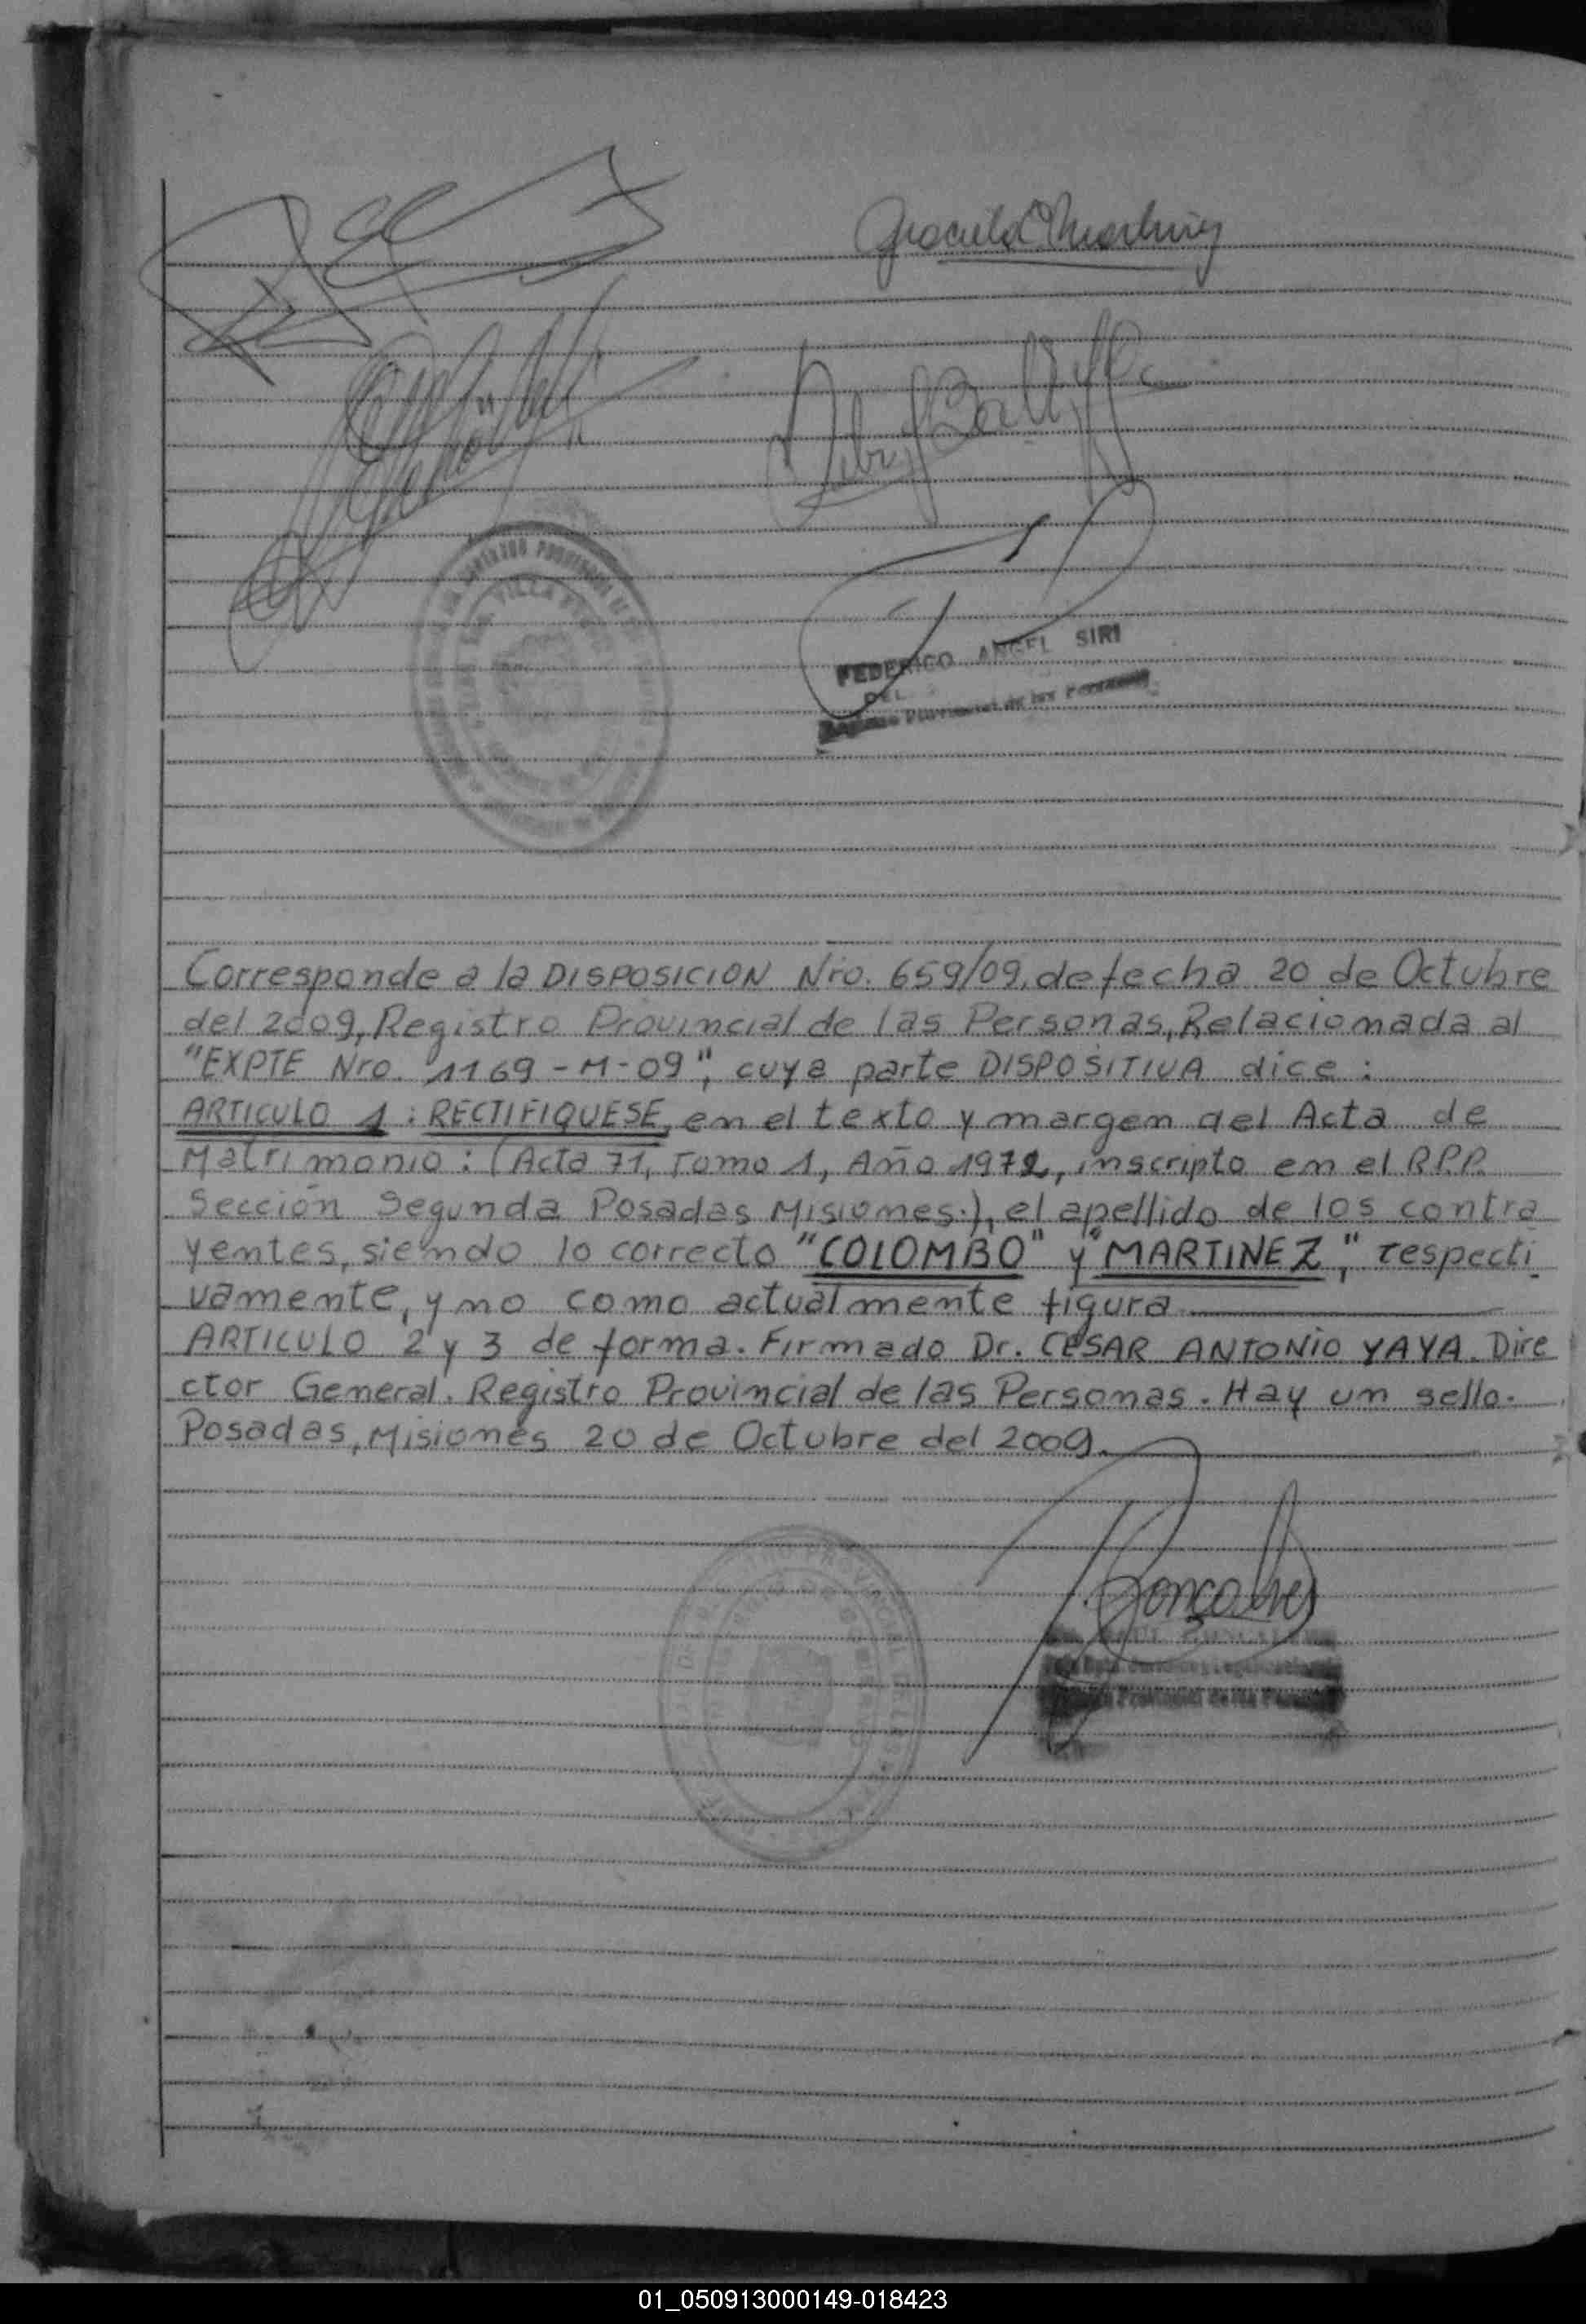 FEDERICO ANGEL SIRI
DEL
Provincial de las Personas
Corresponde a la DISPOSICION Nro. 659/09, de fecha 20 de Octubre
del 2009, Registro Provincial de las Personas, Relacionada al
"EXPTE Nro. 1169-M-09", cuya parte DISPOSITIVA dice:
ARTICULO 1: RECTIFIQUESE, en el texto y margen del Acta de
Matrimonio: (Acta 71, Tomo 1, Año 1972, inscripto en el R.P.P.
Sección Segunda Posadas Misiones.), el apellido de los contra
yentes, siendo lo correcto "COLOMBO" y "MARTINEZ", respecti
vamente, y no como actualmente figura
ARTICULO 2 y 3 de forma. Firmado Dr. CESAR ANTONIO YAYA. Dire
ctor General. Registro Provincial de las Personas. Hay un sello.
Posadas, Misiones 20 de Octubre del 2009.
Provincial de las
01_050913000149-018423